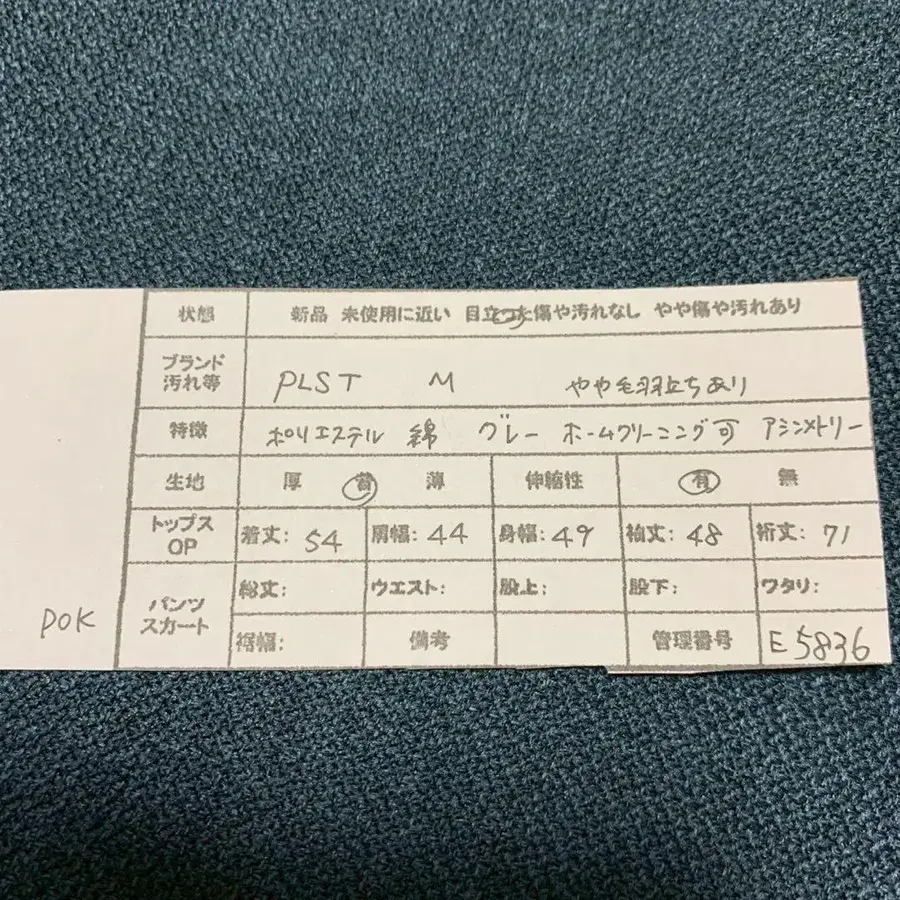 状態 新品 未使用に近い 目立った傷や汚れなし やや傷や汚れあり
ブランド
汚れ等 PLST M やや毛羽立ちあり
特徴 ポリエステル 綿 グレー ホームクリーニング可 アシンメトリー
生地 厚 普 薄 伸縮性 有 無
トップス
OP 着丈: 54 肩幅: 44 身幅: 49 袖丈: 48 裄丈: 71
パンツ
スカート 総丈: ウエスト: 股上: 股下: ワタリ:
裾幅: 備考 管理番号 E5836
POK